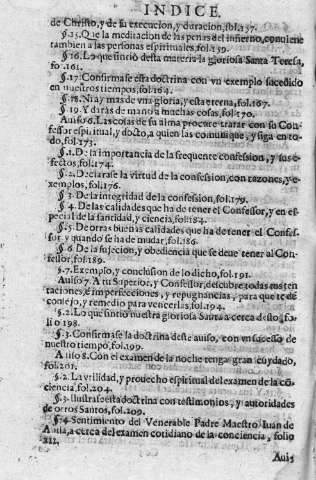 INDICE.
de Christo, y de su execucion, y duracion, fol. 157.
§. 15. Que la meditacion de las penas del infierno, conviene
tambien a las personas espirituales, fol. 159.
§. 16. Lo que sintio desta materia la gloriosa Santa Teresa,
fo. 161.
§. 17. Confirmase esta doctrina con vn exemplo sucedido
en nuestros tiempos, fol. 164.
§. 18. No ay mas de vna gloria, y esta eterna, fol. 167.
§. 19. Y daràs de mano a muchas cosas, fol. 170.
Auiso 6. Las cosas de su alma procure tratar con su Con-
fessor espiritual, y docto, a quien las comunique, y siga en to-
do, fol. 173.
§. 1. De la importancia de la frequente confession, y sus ef-
fectos, fol. 174.
§. 2. Declarase la virtud de la confession, con razones, y e-
xemplos, fol. 176.
§. 3. De la integridad de la confession, fol. 179.
§. 4. De las calidades que ha de tener el Confessor, y en es-
pecial de la santidad, y ciencia, fol. 184.
§. 5. De otras buenas calidades que ha de tener el Confes-
sor y quando se ha de mudar, fol. 186.
§. 6. De la sujecion, y obediencia que se deue tener al Con-
fessor, fol. 189.
§. 7. Exemplo, y conclusion de lo dicho, fol. 191.
Auiso 7. A tu Superior, y Confessor, descubre todas tus ten
taciones, è imperfecciones, y repugnancias, para que te dè
consejo, y remedio para vencerlas, fol. 194.
§. 2. Lo que sintio nuestra gloriosa Santa acerca desto, fo-
lio 198.
§. 3. Confirmase la doctrina deste auiso, con vn sucesso de
nuestro tiempo, fol. 199.
Auiso 8. Con el examen de la noche tenga gran cuydado,
fol. 201.
§. 2. La vtilidad, y prouecho espiritual del examen de la cõ
ciencia, fol. 204.
§. 3. Ilustrase esta doctrina con testimonios, y autoridades
de otros Santos, fol. 209.
§. 4. Sentimiento del Venerable Padre Maestro Iuan de
Auila, acerca del examen cotidiano de la conciencia, folio
212.
Auis